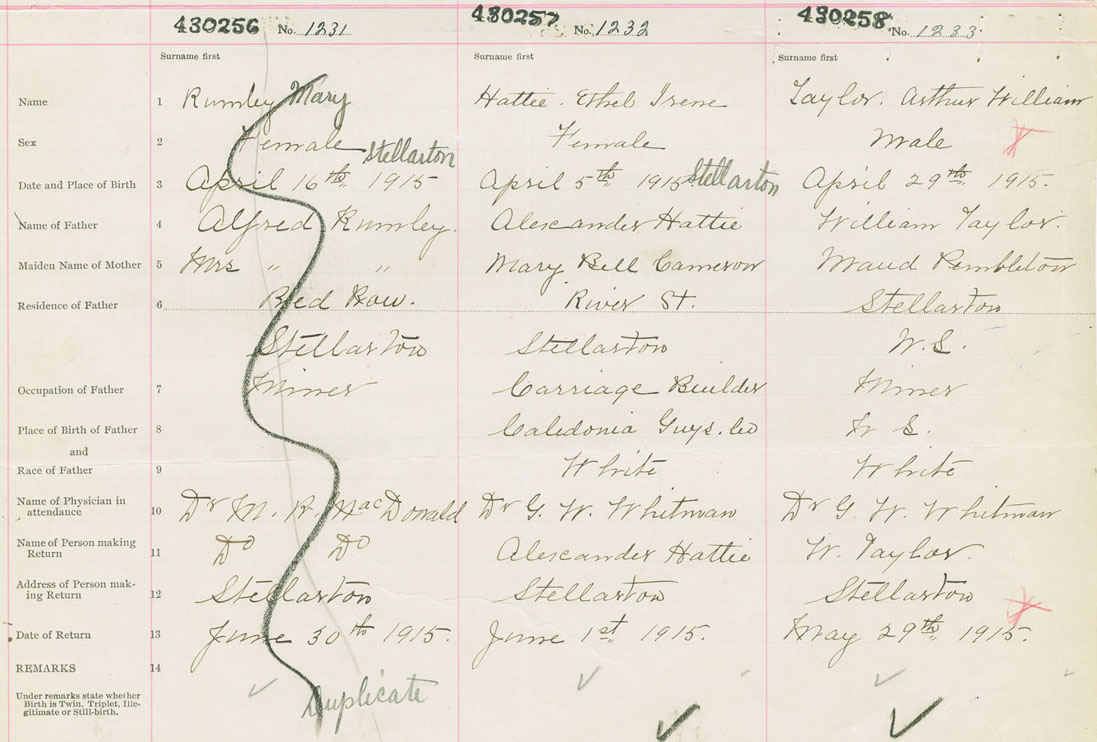 430256 No. 1231 430257 No. 1232 430258 No. 1233
Surname first Surname first Surname first
Name 1 Rumley Mary Hattie. Ethel Irene Taylor. Arthur William
Sex 2 Female Female Male
Stellarton Stellarton
Date and Place of Birth 3 April 16th 1915 April 5th 1915 April 29th 1915.
Name of Father 4 Alfred Rumley. Alexander Hattie William Taylor.
Maiden Name of Mother 5 Mrs " " Mary Bell Cameron Maud Pembleton
Residence of Father 6 Red Row. River St. Stellarton
Stellarton Stellarton N.S.
Occupation of Father 7 Miner Carriage Builder Miner
Place of Birth of Father 8 Caledonia Guys. Co N S.
and
Race of Father 9 White White
Name of Physician in
attendance 10 Dr M. R. MacDonald Dr G. W. Whitman Dr G. W. Whitman
Name of Person making
Return 11 Do Do Alexander Hattie W. Taylor.
Address of Person mak-
ing Return 12 Stellarton Stellarton Stellarton
Date of Return 13 June 30th 1915. June 1st 1915. May 29th 1915.
REMARKS 14
Under remarks state whether
Birth is Twin, Triplet, Ille-
gitimate or Still-birth.
Duplicate